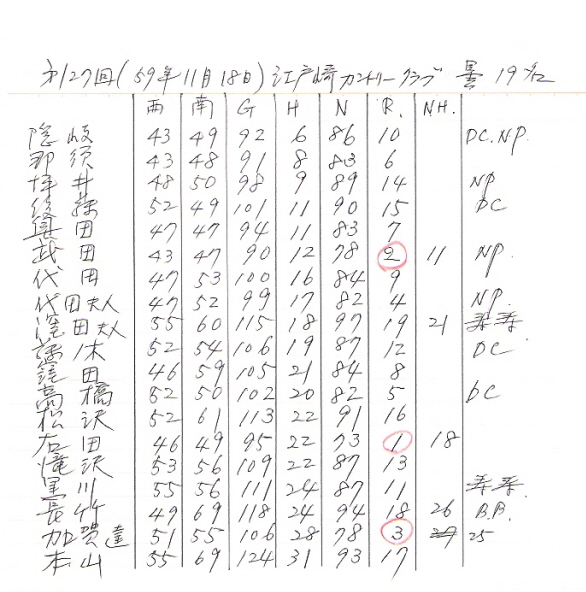 第127回(59年11月18日)江戸崎カントリークラブ 曇 19名
西 南 G H N R. NH.
隠岐 43 49 92 6 86 10 DC.NP.
那須 43 48 91 8 83 6
坪井 48 50 98 9 89 14 NP
後藤 52 49 101 11 90 15 DC
奥田 47 47 94 11 83 7
武田 43 47 90 12 78 2 11 NP.
代田 47 53 100 16 84 9
代田夫人 47 52 99 17 82 4 NP.
窪田夫人 55 60 115 18 97 19 21
木 52 54 106 19 87 12 DC
田 46 59 105 21 84 8
高橋 52 50 102 20 82 5 DC
松沢 52 61 113 22 91 16
右田 46 49 95 22 73 1 18
滝沢 53 56 109 22 87 13
黒川 55 56 111 24 87 11
長竹 49 69 118 24 94 18 26 B.B.
加賀達 51 55 106 28 78 3 27 25
本山 55 69 124 31 93 17